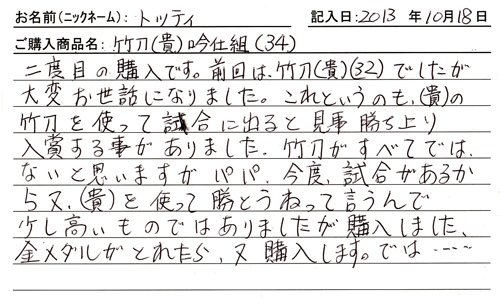 お名前(ニックネーム): トッティ 記入日:2013 年10月18日
ご購入商品名: 竹刀(貴)吟仕組(34)
二度目の購入です。前回は、竹刀(貴)(32)でしたが
大変お世話になりました。これというのも、(貴)の
竹刀を使って試合に出ると見事勝ち上り
入賞する事がありました。竹刀がすべてでは、
ないと思いますがパパ、今度、試合があるか
ら又、(貴)を使って勝とうねって言うんで
少し高いものではありましたが購入しました、
金メダルがとれたら、又購入します。では‥‥